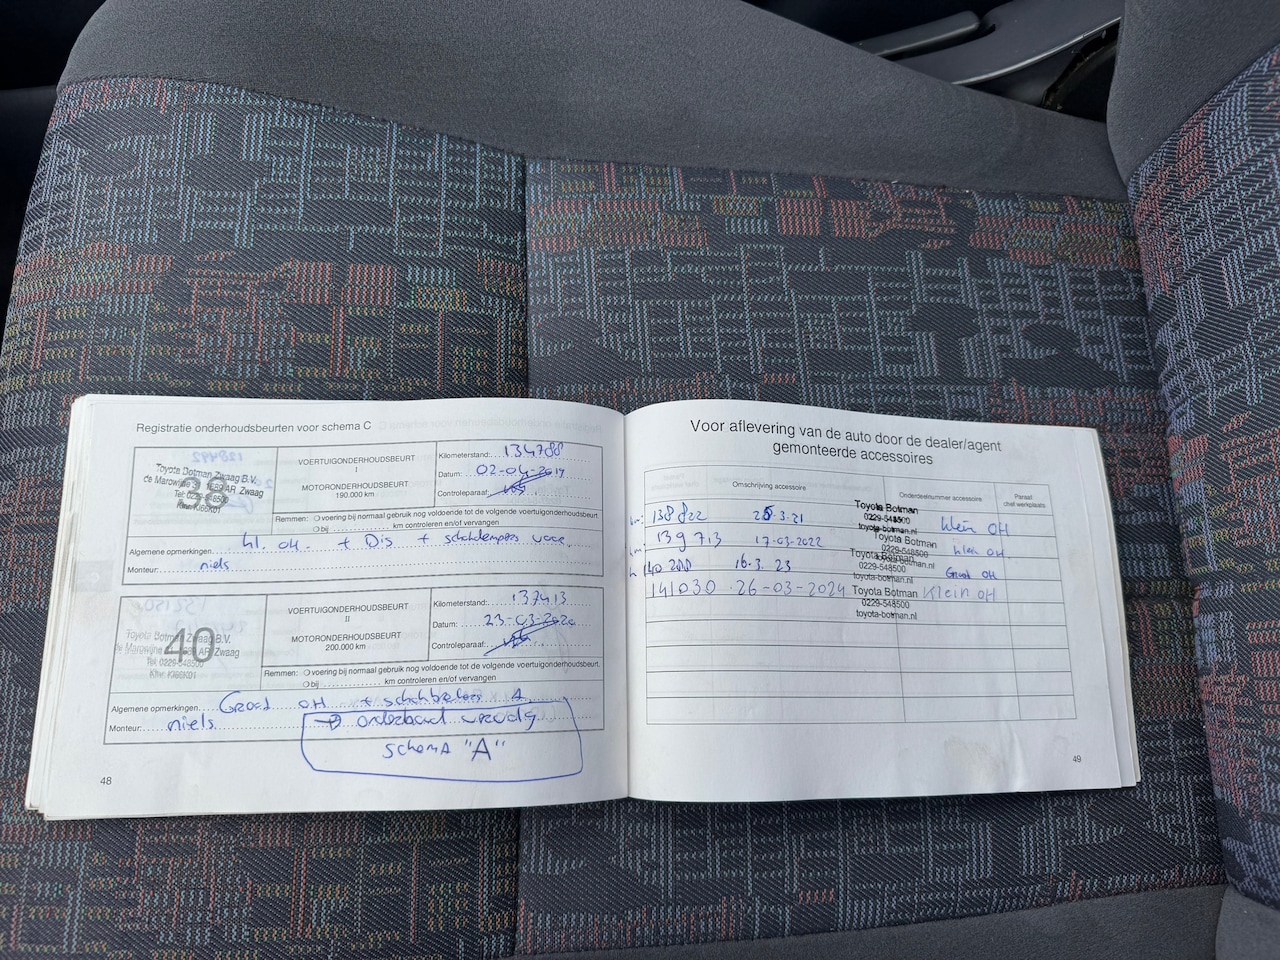 Registratie onderhoudsbeurten voor schema C
Toyota Botman Zwaag B.V.
de Marowijne 1689 AR Zwaag
Tel: 0229-548500
Kiwr: KI66K01
VOERTUIGONDERHOUDSBEURT
I
MOTORONDERHOUDSBEURT
190.000 km
Kilometerstand: 134788
Datum: 02-04-2019
Controleparaaf:
Remmen: voering bij normaal gebruik nog voldoende tot de volgende voertuigonderhoudsbeurt
bij km controleren en/of vervangen
Algemene opmerkingen. kl. oH. + Dis +
Monteur: niels
40
Toyota Botman Zwaag B.V.
de Marowijne 1689 AR Zwaag
Tel: 0229-548500
Kiwr: KI66K01
VOERTUIGONDERHOUDSBEURT
II
MOTORONDERHOUDSBEURT
200.000 km
Kilometerstand: 137413
Datum: 23-03-2020
Controleparaaf:
Remmen: voering bij normaal gebruik nog voldoende tot de volgende voertuigonderhoudsbeurt.
bij km controleren en/of vervangen
Algemene opmerkingen. Groot oH + A
Monteur: niels
→
schema "A"
48
Voor aflevering van de auto door de dealer/agent
gemonteerde accessoires
Omschrijving accessoire
Onderdeelnummer accessoire
Paraaf
chef werkplaats
138822 25.3.21 Toyota Botman klein oH
0229-548500
toyota-botman.nl
139713 17-03-2022 Toyota Botman klein oH.
0229-548500
toyota-botman.nl
16.3.23 Toyota Botman Groot oH
0229-548500
toyota-botman.nl
141030 26-03-2024 Toyota Botman Klein oH
0229-548500
toyota-botman.nl
49